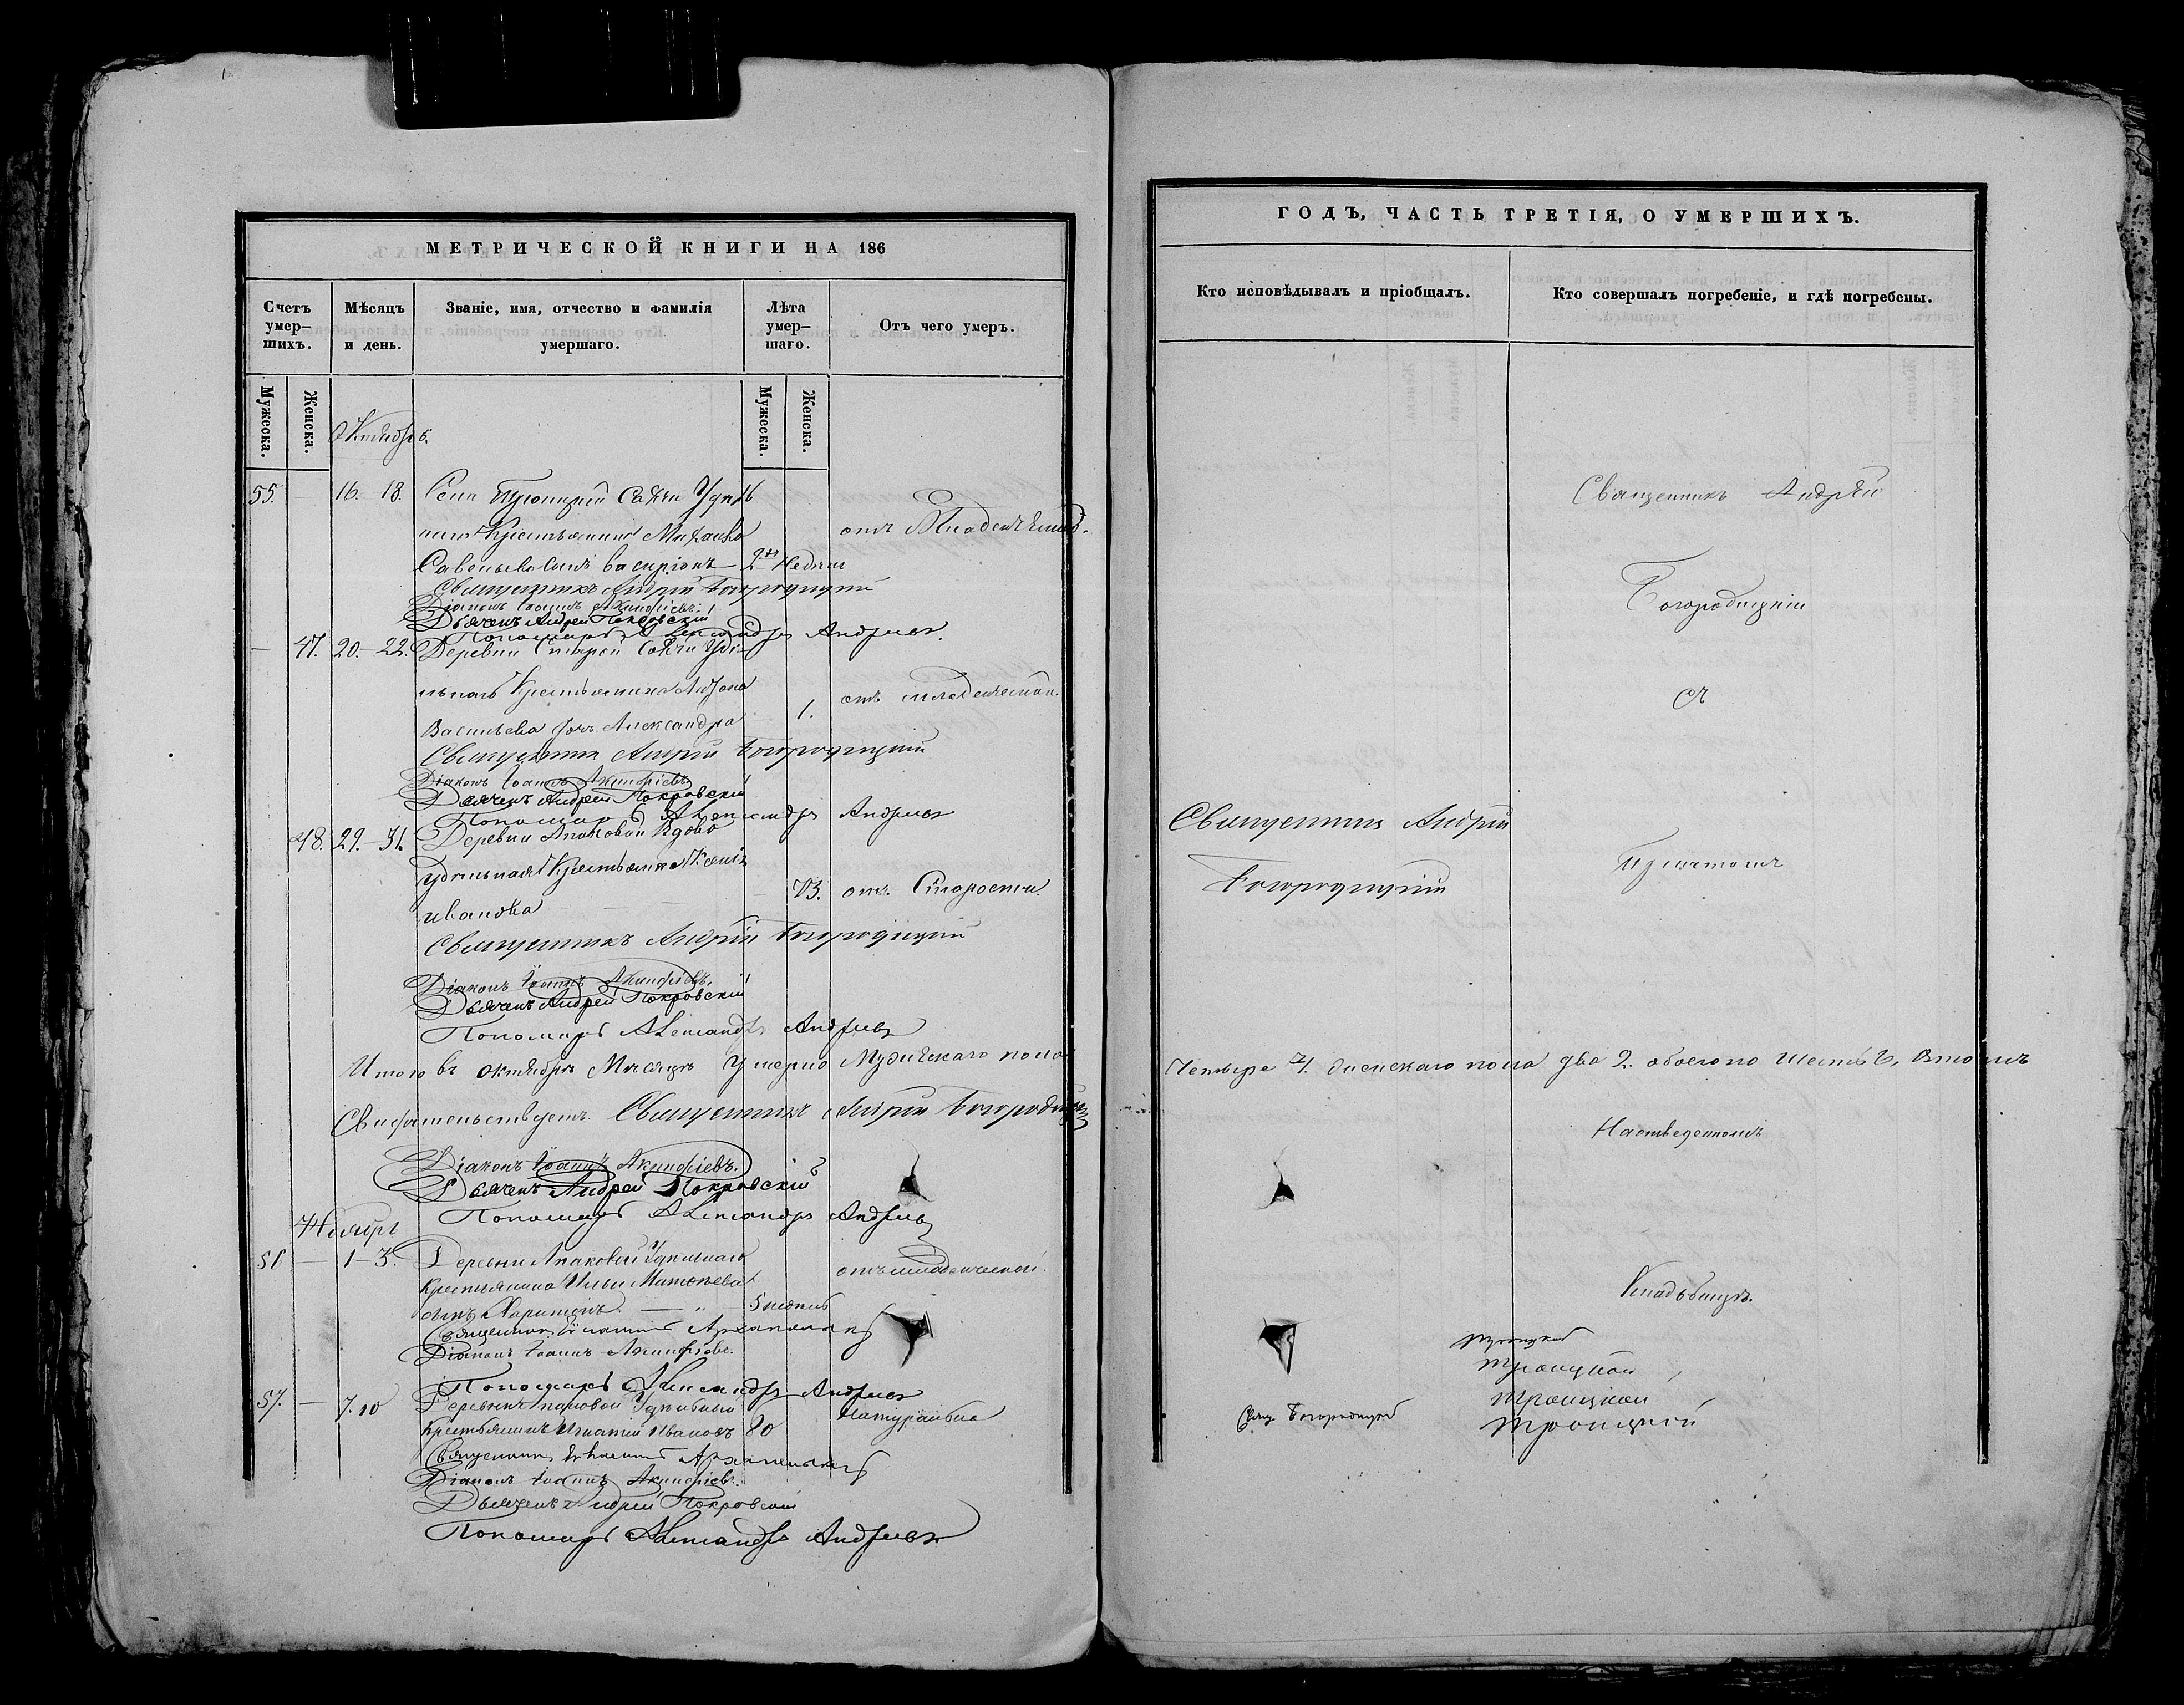 МЕТРИЧЕСКОЙ КНИГИ НА 186
Счетъ умер-шихъ.
Мѣсяцъ и день.
Званіе, имя, отчество и фамилія умершаго.
Лѣта умер-шаго.
Отъ чего умеръ.
Мужеска.
Женска.
Мужеска.
Женска.
Октябрь.
55. 16. 18. Села
Крестьянина Михаила
Савельева сынъ 2 Недели
отъ
Священникъ Андрей Богородицкій
Діаконъ Іоаннъ Акинфіевъ
Дьячекъ Андрей Покровскій
Пономарь Александръ Андреевъ
— 47. 20.-22. Деревни Старой
Крестьянина
Васильева дочь Александра 1. отъ младенческой
Священникъ Андрей Богородицкій
Діаконъ Іоаннъ Акинфіевъ
Дьячекъ Андрей Покровскій
Пономарь Александръ Андреевъ
48. 29.-31. Деревни Апаковой Вдова
Удѣльная Крестьянка
Иванова 73. отъ Старости.
Священникъ Андрей Богородицкій
Діаконъ Іоаннъ Акинфіевъ.
Дьячекъ Андрей Покровскій
Пономарь Александръ Андреевъ
Итого въ октябрѣ Мѣсяцѣ умерло Мужескаго пола
Свидѣтельствуетъ. Священникъ Андрей Богородицкій
Діаконъ Іоаннъ Акинфіевъ.
Дьячекъ Андрей Покровскій
Пономарь Александръ Андреевъ
Ноябрь
56 — 1-3. Деревни Апаковой Удѣльнаго
Крестьянина Ильи
сынъ Харитонъ. — " — 5
отъ младенческой.
Священникъ
Діаконъ Іоаннъ Акинфіевъ.
Пономарь Александръ Андреевъ
57. — 7. 10 Деревни Апаковой Удѣльный
Крестьянинъ Игнатій Ивановъ 80
Натурально
Священникъ
Діаконъ Іоаннъ Акинфіевъ.
Дьячекъ Андрей Покровскій
Пономарь Александръ Андреевъ
ГОДЪ, ЧАСТЬ ТРЕТІЯ, О УМЕРШИХЪ.
Кто исповѣдывалъ и пріобщалъ.
Кто совершалъ погребеніе, и гдѣ погребены.
Священникъ Андрей
Богородицкій
съ
Священникъ Андрей
Богородицкій
Причтомъ
Четыре 4. женскаго пола два 2. обоего по Шесть 6, Въ томъ
На отведенномъ
Кладбищѣ.
Троицкой
Троицкой
Троицкой
Троицкой
Свящ Богородицкой